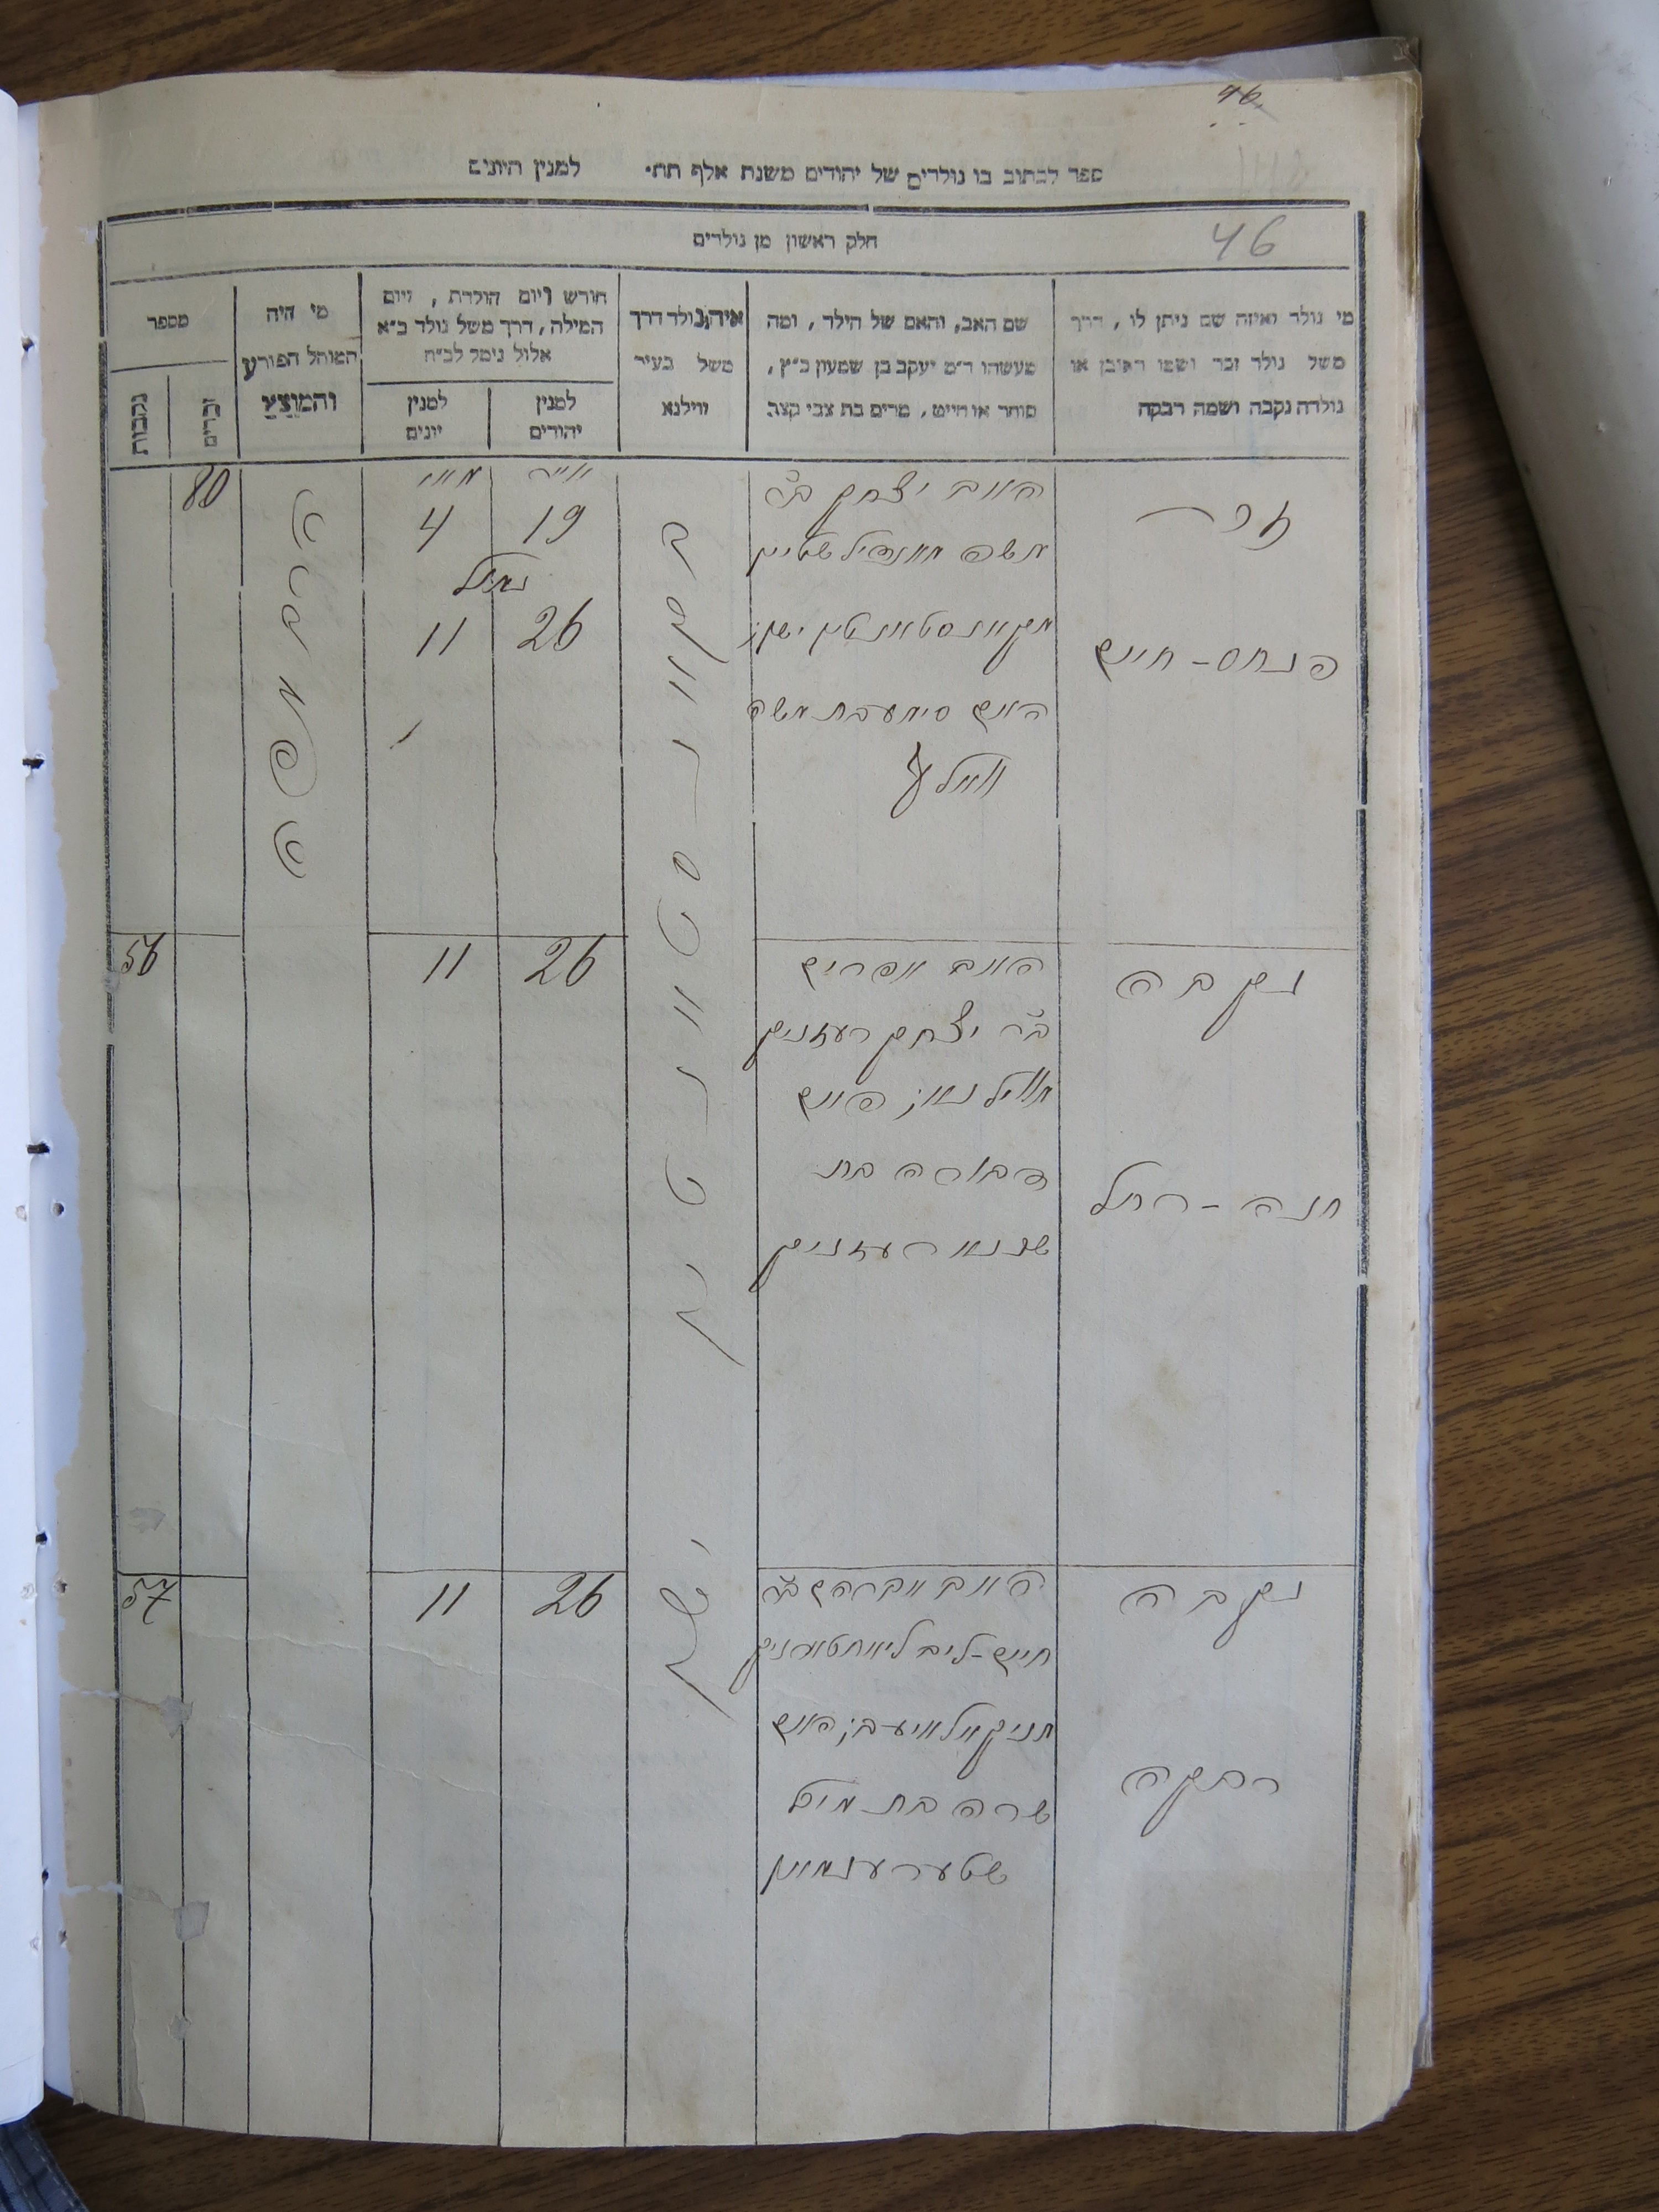 46
ספר לכתוב בו נולדים של יהודים משנת אלף תת׳ למנין היונים
46
חלק ראשון מן נולדים
מי נולד ואיזה שם ניתן לו, דרך
משל נולד זכר ושמו ראובן או
נולדה נקבה ושמה רבקה
שם האב, והאם של הילד, ומה
מעשהו ד״מ יעקב בן שמעון כ״ץ,
סוחר או חייט, מרים בת צבי קצב
איה נולד דרך
משל בעיר
ווילנא
חודש ויום הולדת, ויום
המילה, דרך משל נולד כ״א
אלול נימל לב״ח
למנין
יהודים
למנין
יונים
מי היה
המוהל הפורע
והמוצץ
מספר
זכרים
נקבות
זכר
פנחס - חיים
האב יצחק ב״ר
משה
מקאנסטאנטין ישן;
האם סימע בת משה
קאנסטאנטין
ישן
אייר
מאי
19
4
נימול
26
11
80
נקבה
חנה - רחל
האב אפרים
ב״ר יצחק רעזניק
האם
דבורה בת
רעזניק
26
11
56
נקבה
רבקה
האב אברהם ב״ר
חיים - ליב
האם
שרה בת
26
11
57